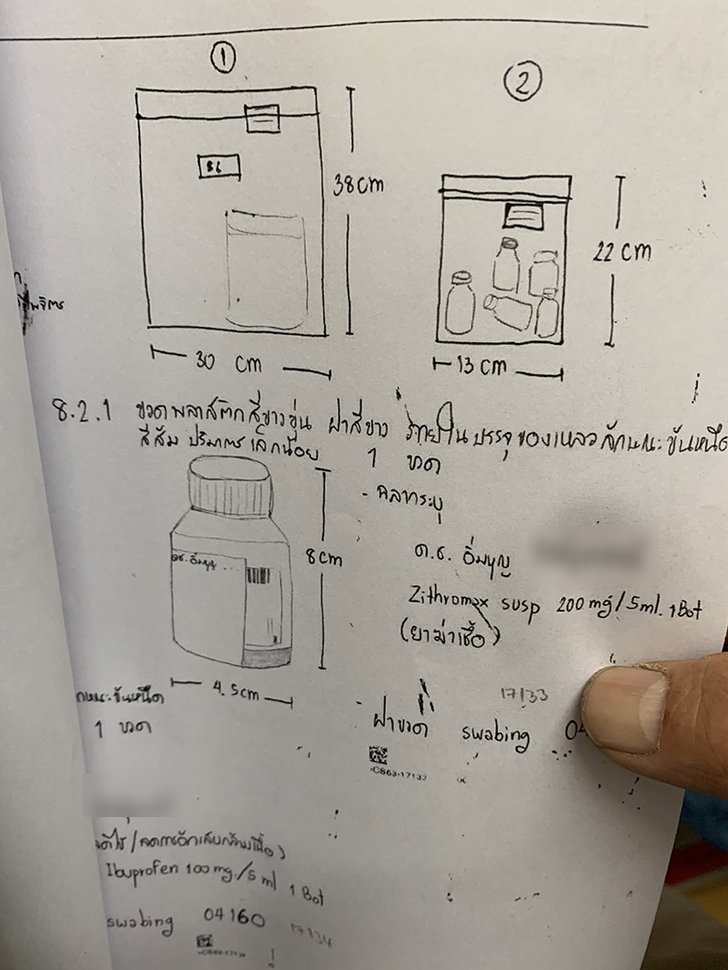 1
2
B6
38 cm
22 cm
30 cm
13 cm
8.2.1 ขวดพลาสติกสีขาวขุ่น ฝาสีขาว ภายในบรรจุของเหลวลักษณะข้นหนืด
สีส้ม ปริมาตรเล็กน้อย 1 ขวด
- ฉลากระบุ
ด.ช. อิ่มบุญ
Zithromax susp 200 mg/5ml. 1 Bot
(ยาฆ่าเชื้อ)
ด.ช. อิ่มบุญ
8 cm
4.5 cm
17133
- ฝาขวด swabing 04
-0863-17133
ข้นหนืด
1 ขวด
Ibuprofen 100 mg./5 ml 1 Bot
swabing 04160
17134